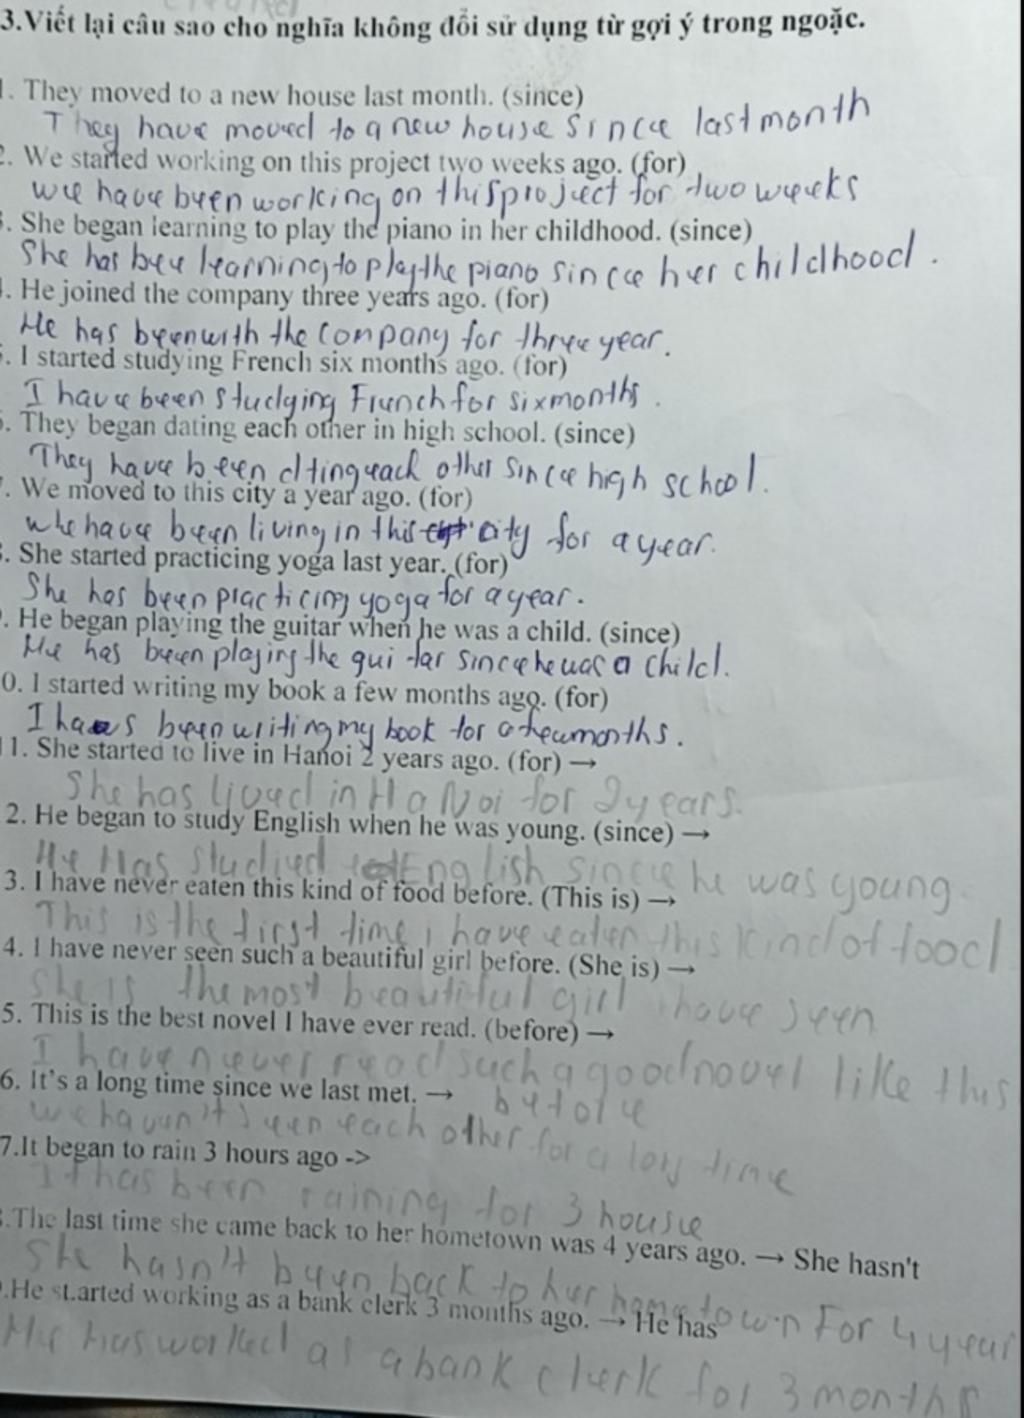 3.Viết lại câu sao cho nghĩa không đổi sử dụng từ gợi ý trong ngoặc.
. They moved to a new house last month. (since)
They have moved to a new house since last month
. We started working on this project two weeks ago. (for)
We have been working on this project for two weeks
. She began learning to play the piano in her childhood. (since)
She has bee learning to play the piano since her childhood.
. He joined the company three years ago. (for)
He has been with the company for three year.
. I started studying French six months ago. (for)
I have been studying French for six months.
. They began dating each other in high school. (since)
They have been dting each other since high school.
. We moved to this city a year ago. (for)
We have been living in this city for a year.
. She started practicing yoga last year. (for)
She has been practicing yoga for a year.
. He began playing the guitar when he was a child. (since)
He has been playing the guitar since he was a child.
0. I started writing my book a few months ago. (for)
I has been writing my book for a few months.
1. She started to live in Hanoi 2 years ago. (for) →
She has lived in Ha Noi for 2 years.
2. He began to study English when he was young. (since) →
He Has studied English since he was young.
3. I have never eaten this kind of food before. (This is) →
This is the first time i have eaten this kind of food
4. I have never seen such a beautiful girl before. (She is) →
She is the most beautiful girl i have seen
5. This is the best novel I have ever read. (before) →
I have never read such a good novel like this
6. It's a long time since we last met. → before
we haven't seen each other for a long time
7.It began to rain 3 hours ago ->
It has been raining for 3 house
.The last time she came back to her hometown was 4 years ago. → She hasn't
She hasn't been back to her hometown For 4 year
.He st.arted working as a bank clerk 3 months ago. → He has
He has worked as a bank clerk for 3 months